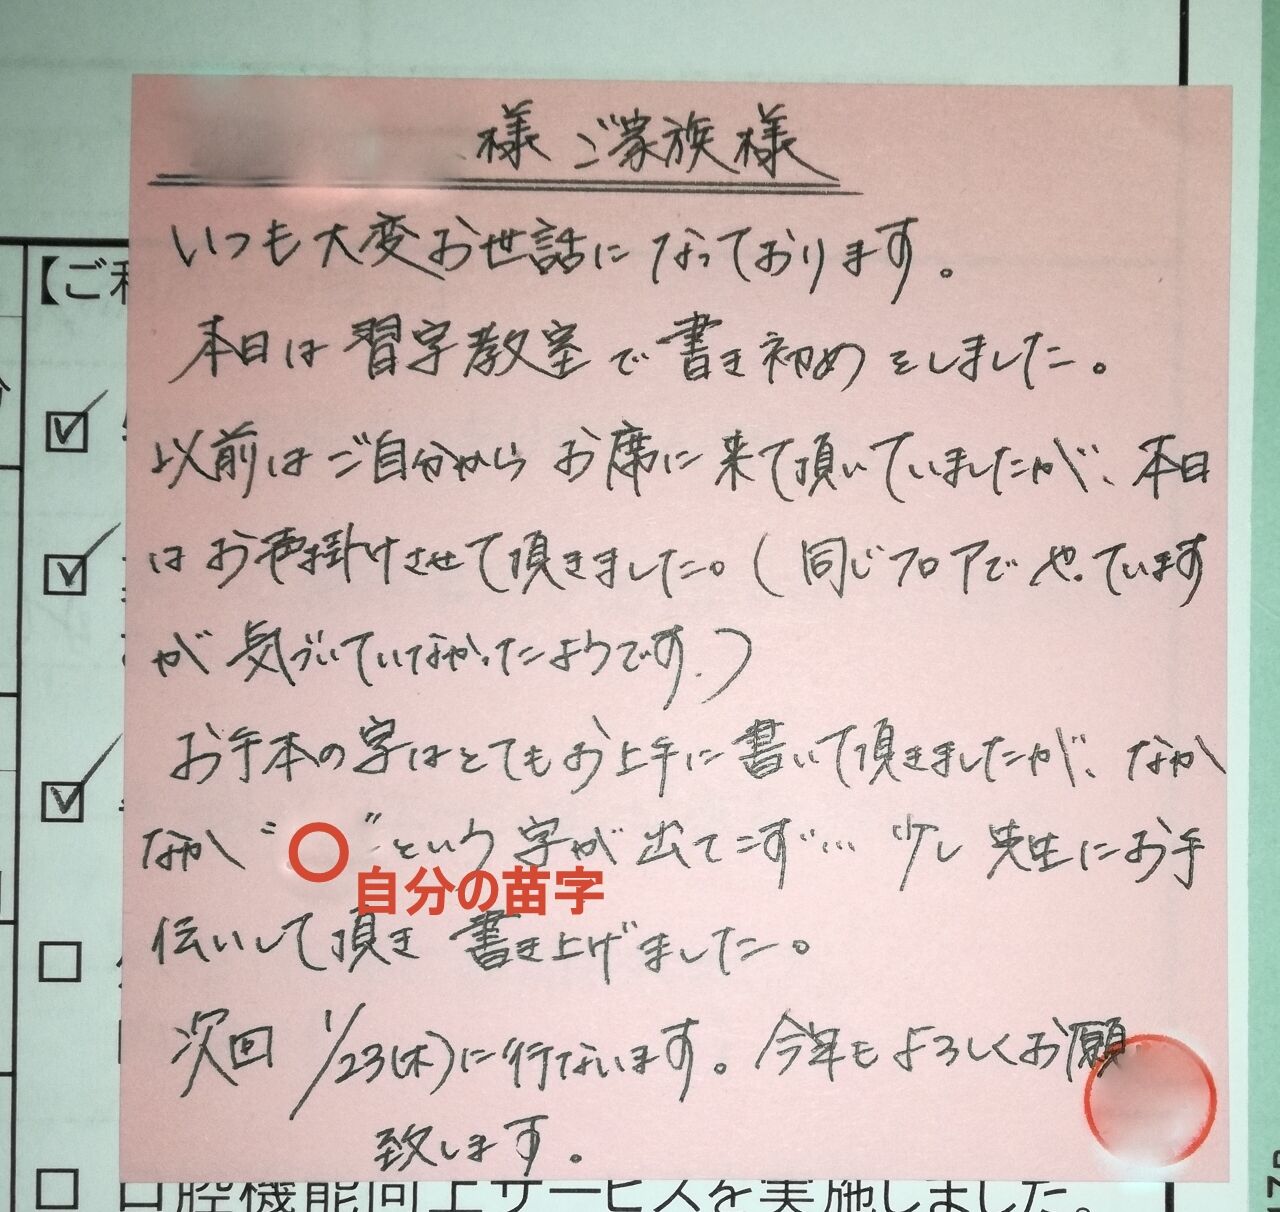 様 ご家族様
いつも大変お世話になっております。
本日は習字教室で書き初めをしました。
以前はご自分からお席に来て頂いていましたが、本日
はお声掛けさせて頂きました。(同じフロアでやっています
が気づいていなかったようです。)
お手本の字はとてもお上手に書いて頂きましたが、なか
なか"〇"という字が出てこず… 少し先生にお手
自分の苗字
伝いして頂き書き上げました。
次回 1/23(木)に行ないます。今年もよろしくお願
致します。
【ご利
口腔機能向上サービスを実施しました。